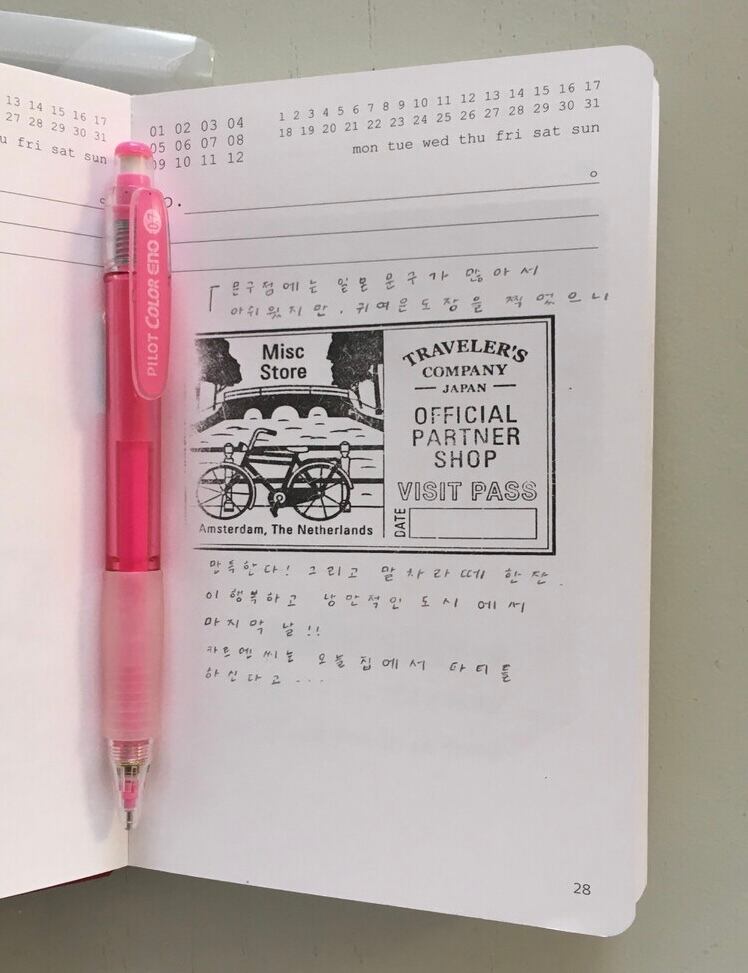 13 14 15 16 17
27 28 29 30 31
u fri sat sun
01 02 03 04
05 06 07 08
09 10 11 12
1 2 3 4 5 6 7 8 9 10 11 12 13 14 15 16 17
18 19 20 21 22 23 24 25 26 27 28 29 30 31
mon tue wed thu fri sat sun
PILOT COLOR ENO 0.7
문구점에는 일본 문구가 많아서
아쉬웠지만, 귀여운 도장을 찍었으니
Misc
Store
Amsterdam, The Netherlands
TRAVELER'S
COMPANY
JAPAN
OFFICIAL
PARTNER
SHOP
VISIT PASS
DATE
만족한다! 그리고 말차라떼 한잔.
이 행복하고 낭만적인 도시에서
마지막 날!!
카르멘씨는 오늘 집에서 파티를
하신다고...
28